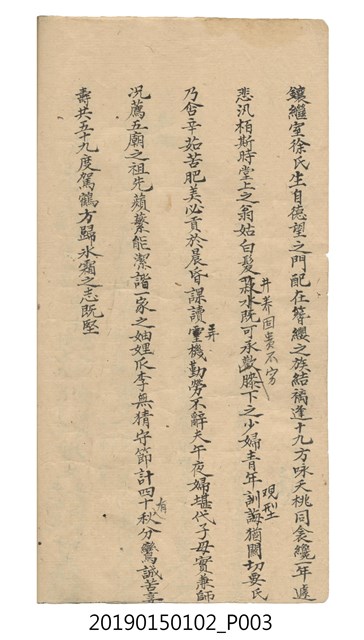 鑲繼室徐氏生自德望之門配在簪纓之族結褵逢十九方咏夭桃同衾纔一年遽
悲汎栢斯時堂上之翁姑白髮菽水既可承歡膝下之少婦青年訓誨猶關切要氏
井養固責不容
現型
乃含辛茹苦肥美必貢於晨昏課讀重機勤勞不辭夫午夜婦堪代子母實兼師
弄
況薦五廟之祖先蘋蘩能潔諧一家之妯娌瓜李無猜守節計四十秋分鸞誠苦享
有
壽共五十九度駕鶴方歸氷霜之志既堅
20190150102_P003